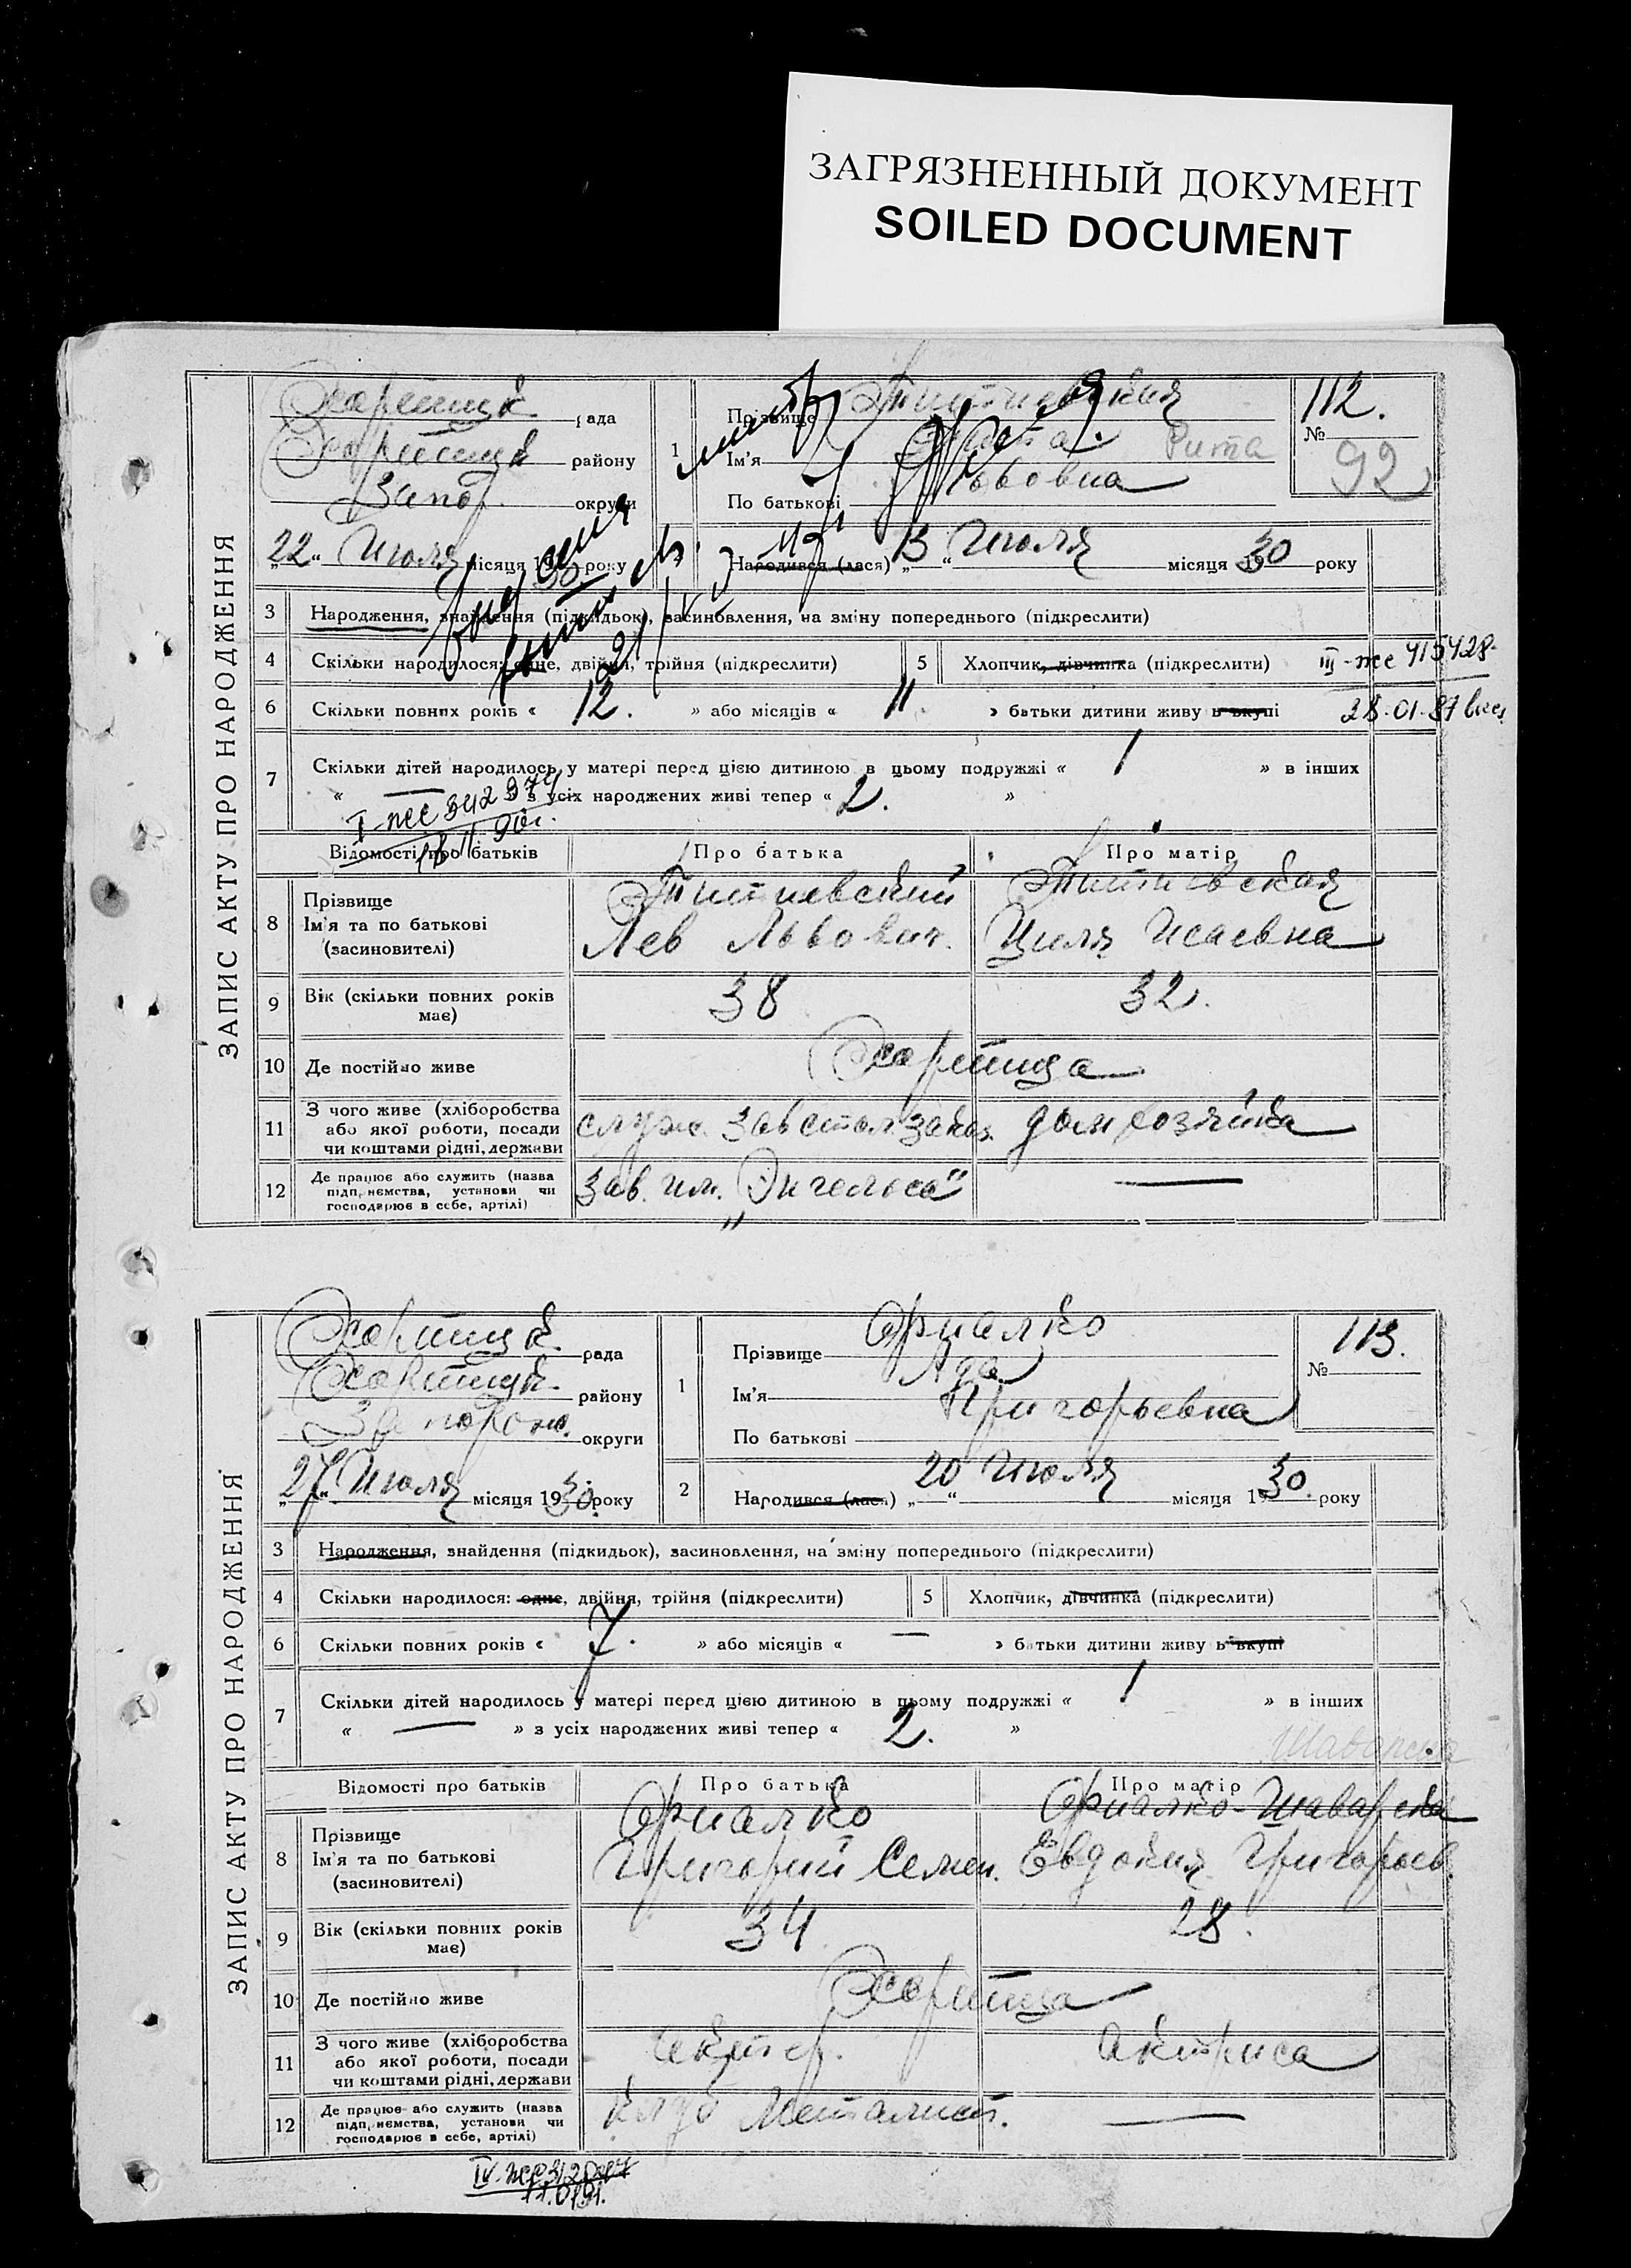 ЗАГРЯЗНЕННЫЙ ДОКУМЕНТ
SOILED DOCUMENT
ЗАПИС АКТУ ПРО НАРОДЖЕННЯ
Хортицк. рада
Хортицк району
Запор. округи
„22“ Июля місяця 1930 року
1
Прізвище
Ім'я Рита
По батькові Львовна
112.
№
92
Народився (лася) „13“ Июля місяця 1930 року
3 Народження, знайдення (підкидьок), засиновлення, на зміну попереднього (підкреслити)
4 Скільки народилося: одне, двійня, трійня (підкреслити) 5 Хлопчик, дівчинка (підкреслити)
III-ЖС 415428
6 Скільки повних років « 12. » або місяців « 11. » батьки дитини живу вкупі
28.01.87
7 Скільки дітей народилось у матері перед цією дитиною в цьому подружжі « 1 » в інших
« — » з усіх народжених живі тепер « 2. »
I-ЖС 342974
Відомості про батьків Про батька Про матір
8 Прізвище
Ім'я та по батькові
(засиновителі)
Лев Львович. Циля Исаевна
9 Вік (скільки повних років має) 38 32.
10 Де постійно живе Хортица
11 З чого живе (хліборобства або якої роботи, посади чи коштами рідні, держави
служ. дом хозяйка
12 Де працює або служить (назва підприємства, установи чи господарює в себе, артілі)
Зав. им. „Энгельса“ —
ЗАПИС АКТУ ПРО НАРОДЖЕННЯ
Хортицк. рада
Хортицк. району
Запорож. округи
„27“ Июля місяця 1930 року
1
Прізвище
Ім'я Ада
По батькові Григорьевна
113.
№
2 Народився (лася) „20“ Июля місяця 1930. року
3 Народження, знайдення (підкидьок), засиновлення, на зміну попереднього (підкреслити)
4 Скільки народилося: одне, двійня, трійня (підкреслити) 5 Хлопчик, дівчинка (підкреслити)
6 Скільки повних років « 7. » або місяців « — » батьки дитини живу вкупі
7 Скільки дітей народилось у матері перед цією дитиною в цьому подружжі « 1 » в інших
« — » з усіх народжених живі тепер « 2. »
Відомості про батьків Про батька Про матір
8 Прізвище
Ім'я та по батькові
(засиновителі)
Григорий Семен. Евдокия Григорьев.
9 Вік (скільки повних років має) 34 28.
10 Де постійно живе Хортица
11 З чого живе (хліборобства або якої роботи, посади чи коштами рідні, держави
Актер. Актриса
12 Де працює або служить (назва підприємства, установи чи господарює в себе, артілі)
Клуб Металист. —